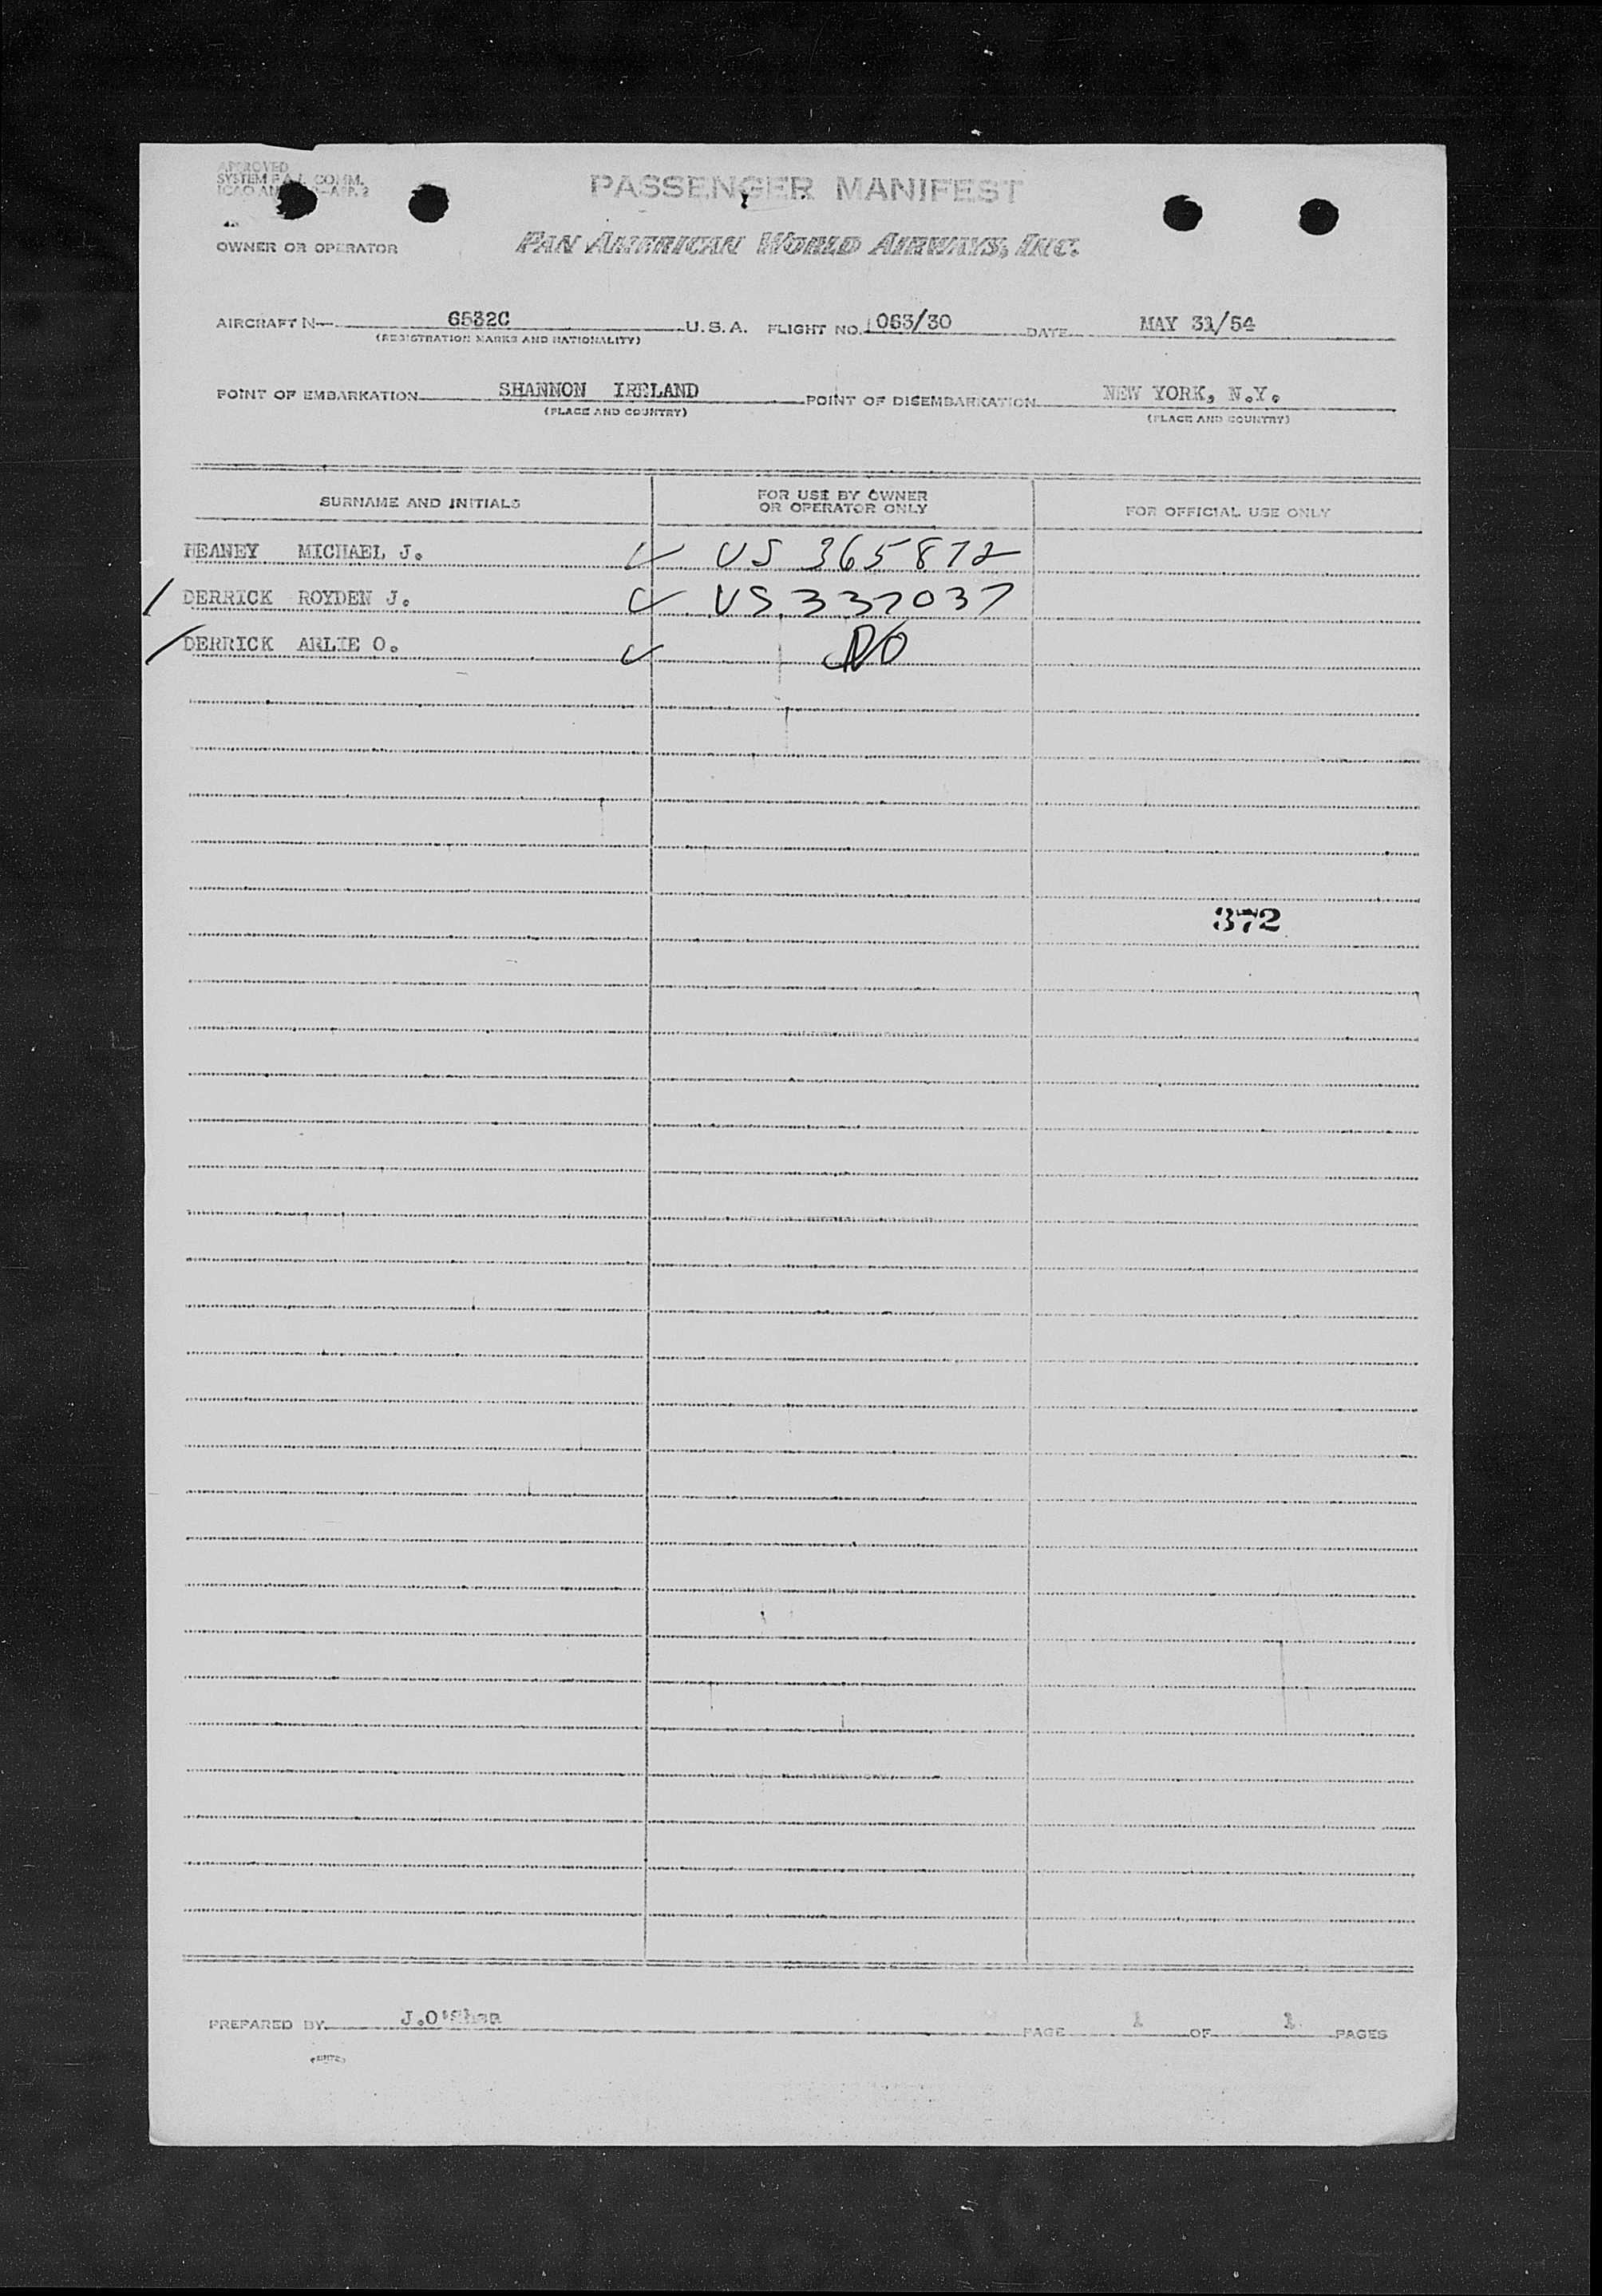 APPROVED
SYSTEM P.A.A. COMM.
PASSENGER MANIFEST
OWNER OR OPERATOR
PAN AMERICAN WORLD AIRWAYS, INC.
AIRCRAFT N— 6532C U.S.A. FLIGHT NO. 063/30 DATE MAY 31/54
(REGISTRATION MARKS AND NATIONALITY)
POINT OF EMBARKATION SHANNON IRELAND POINT OF DISEMBARKATION NEW YORK, N.Y.
(PLACE AND COUNTRY) (PLACE AND COUNTRY)
SURNAME AND INITIALS FOR USE BY OWNER OR OPERATOR ONLY FOR OFFICIAL USE ONLY
HEANEY MICHAEL J. ✓ US 365872
/ DERRICK ROYDEN J. ✓ US 337037
/ DERRICK ARLIE O. ✓ DO
372
PREPARED BY J.O'Shea PAGE 1 OF 1 PAGES